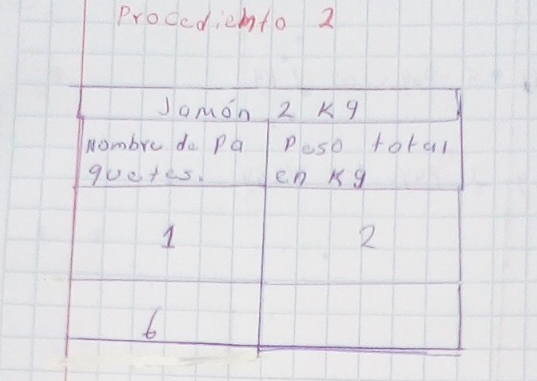 Procediehto 2
Jamón 2 Kg
Nombre de Pa
quetes.
Peso total
en Kg
1
2
6